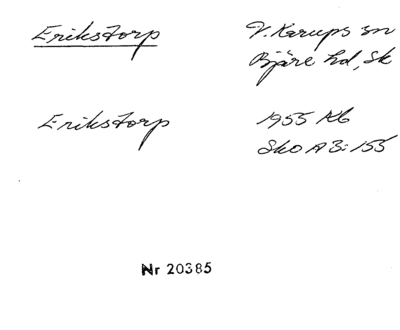 Erikstorp
V. Karups sn
Bjäre hd, Sk
Erikstorp
1955 Kb
Sko A 3:155
Nr 20385